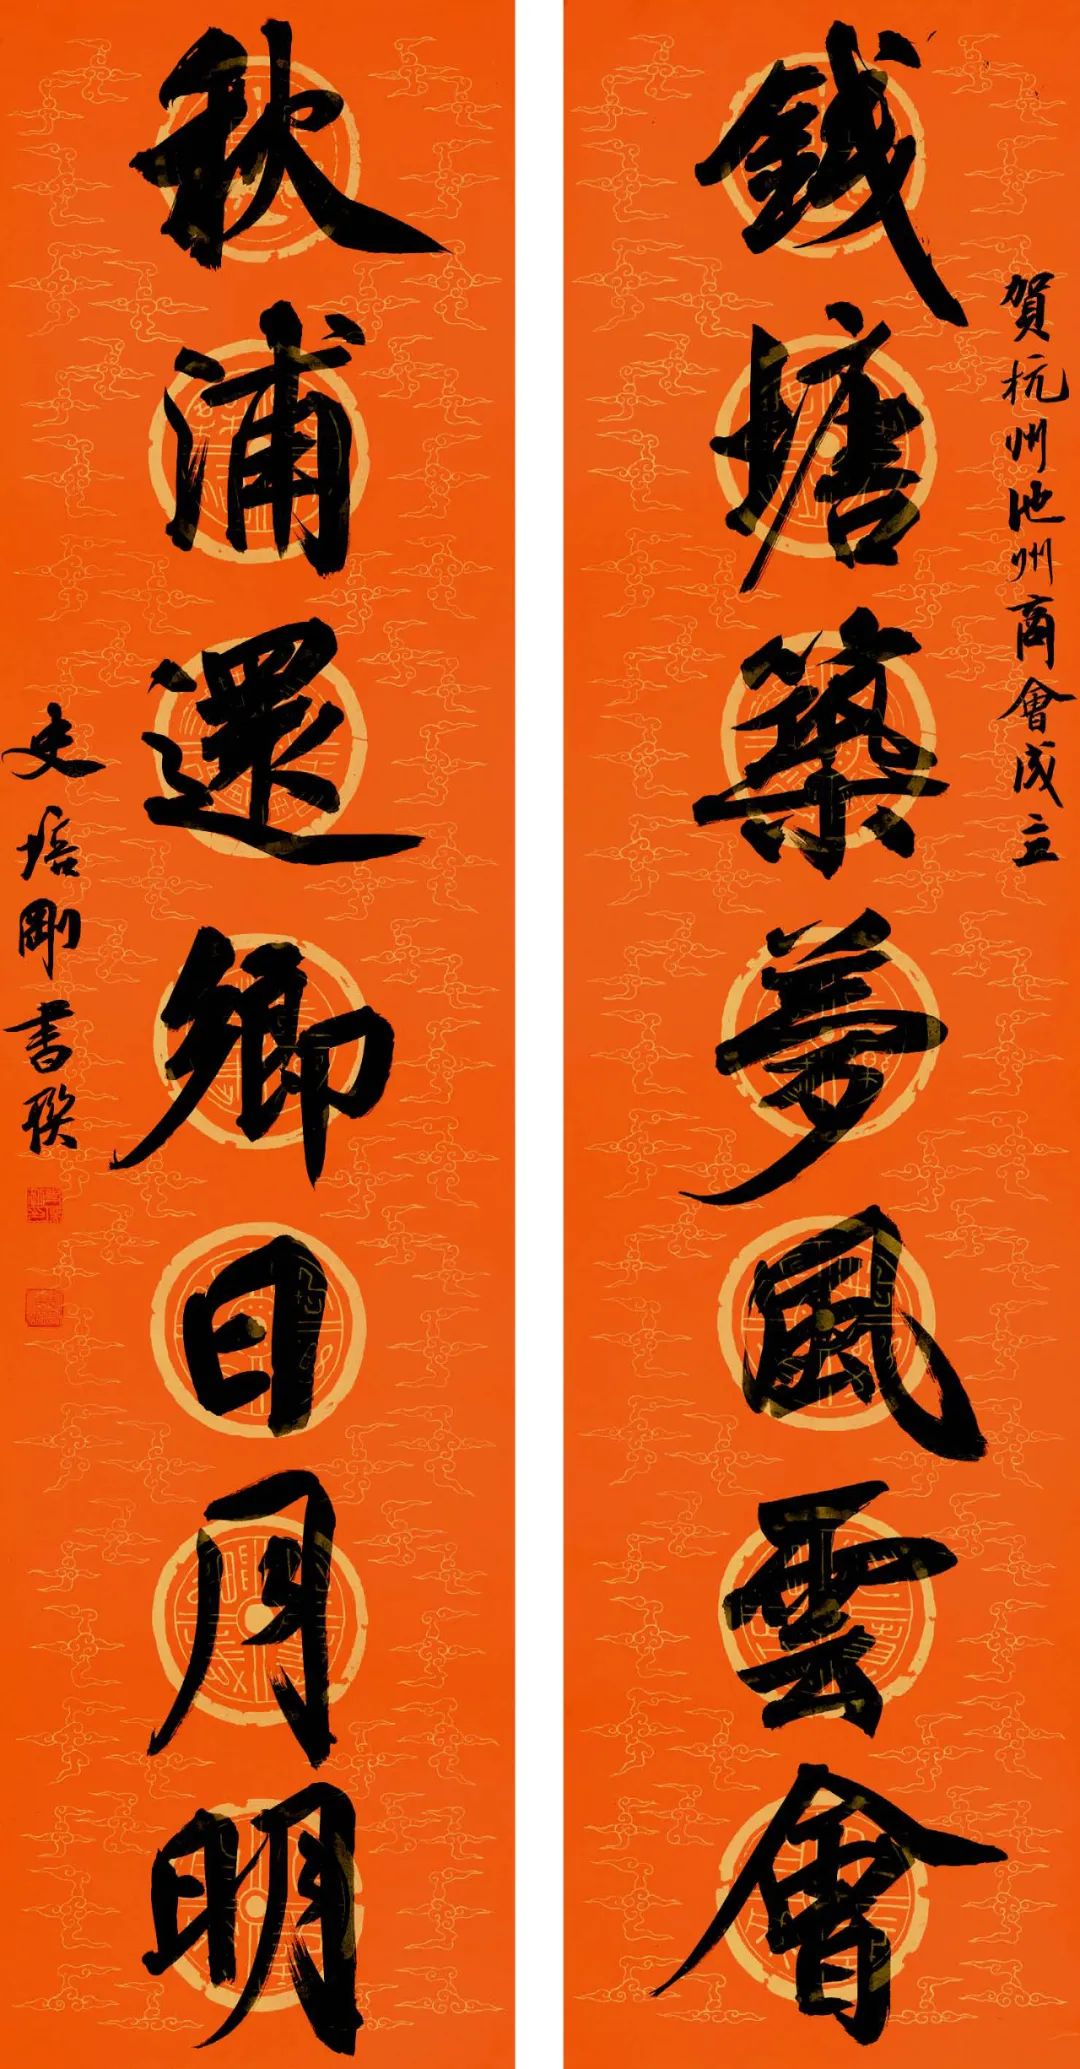 賀杭州池州商會成立
錢塘築夢風雲會
秋浦還鄉日月明
史培剛書联